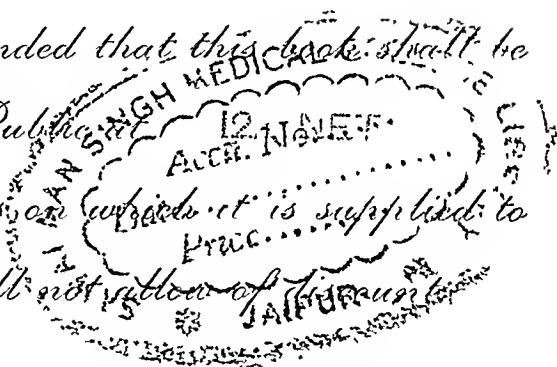 nded that this book shall be
Public at 12/- NET.
on which it is supplied to
ll not allow of discount
MAN SINGH MEDICAL
Accn. No.
Date
Price
JAIPUR